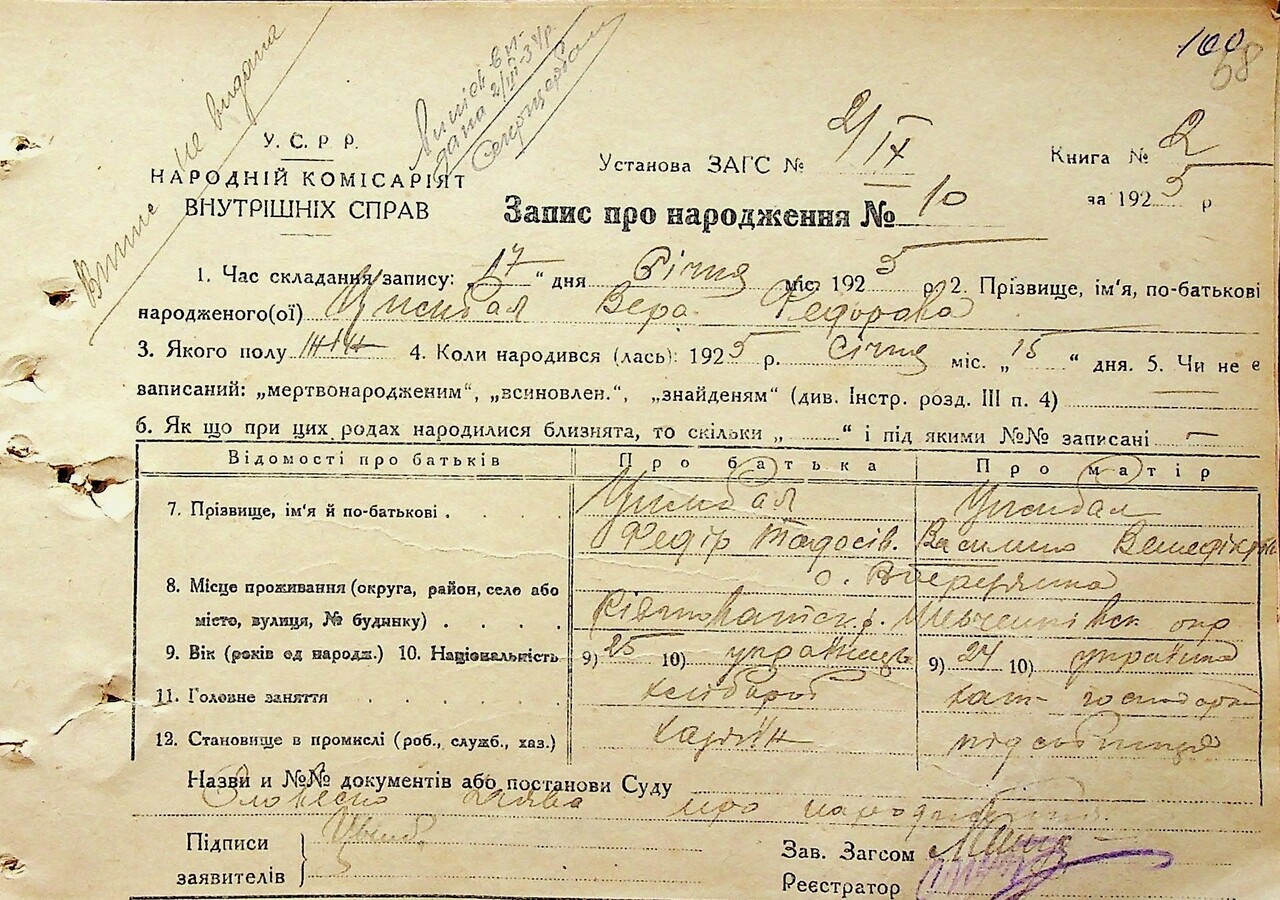 100
58
Випис не видана
Виписъ ви-
дана 2/III-34р
У. С. Р Р.
НАРОДНІЙ КОМІСАРІЯТ
ВНУТРІШНІХ СПРАВ
Установа ЗАГС № 2/IX
Книга № 2
за 1925 р
Запис про народження № 10
1. Час складання запису: „17“ дня Січня міс. 1925 р. 2. Прізвище, ім'я, по-батькові
народженого(ої) Цимбал Вера Федорова
3. Якого полу жін 4. Коли народився (лась): 1925 р. Січня міс. „15“ дня. 5. Чи не є
записаний: „мертвонародженим“, „всиновлен.“, „знайденям“ (див. Інстр. розд. III п. 4)
6. Як що при цих родах народилися близнята, то скільки „ “ і під якими №№ записані —
Відомості про батьків Про батька Про матір
7. Прізвище, ім'я й по-батькові Цимбал Цимбал
Федір Тодосів. Василина
8. Місце проживання (округа, район, село або с.
місто, вулиця, № будинку) р. Шевченківск окр
9. Вік (років од народж.) 10. Національність 9) 25 10) українець 9) 24 10) українка
11. Головне заняття хлібороб хат. господарка
12. Становище в промислі (роб., служб., хаз.) хазяїн підсобниця
Назви и №№ документів або постанови Суду
Словесна заява про народження
Підписи
заявителів
Зав. Загсом
Реєстратор